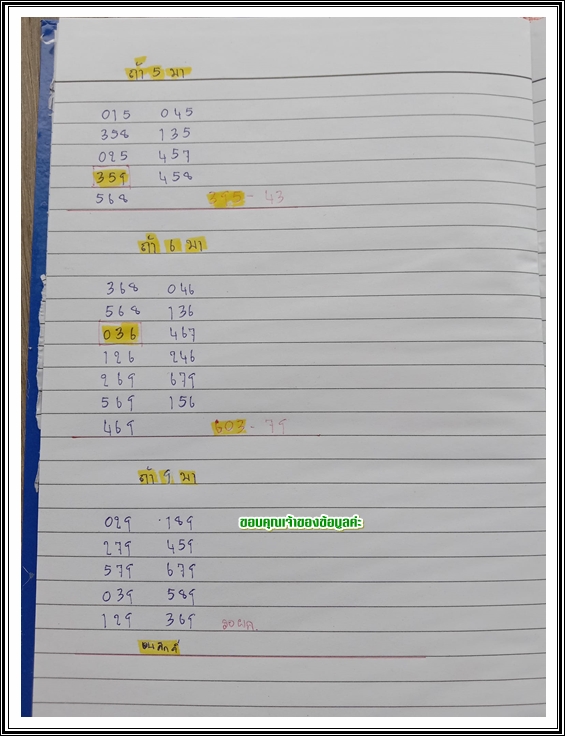 ถ้า 5 มา
015 045
358 135
025 457
359 458
568 395 - 43
ถ้า 6 มา
368 046
568 136
036 467
126 246
269 679
569 156
469 603 - 79
ถ้า 9 มา
029 189
ขอบคุณเจ้าของข้อมูลค่ะ
279 459
579 679
039 589
129 369 รอผล.